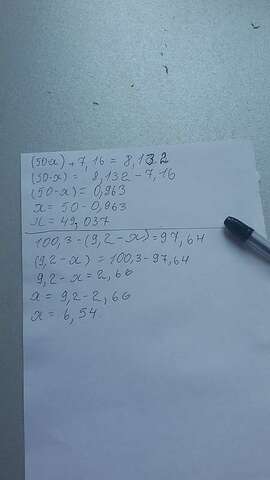 (50-x)+7,16 = 8,132
(50-x) = 8,132-7,16
(50-x) = 0,963
x = 50-0,963
x = 49,037
100,3-(9,2-x)=97,64
(9,2-x) = 100,3-97,64
9,2-x = 2,66
x = 9,2-2,66
x = 6,54